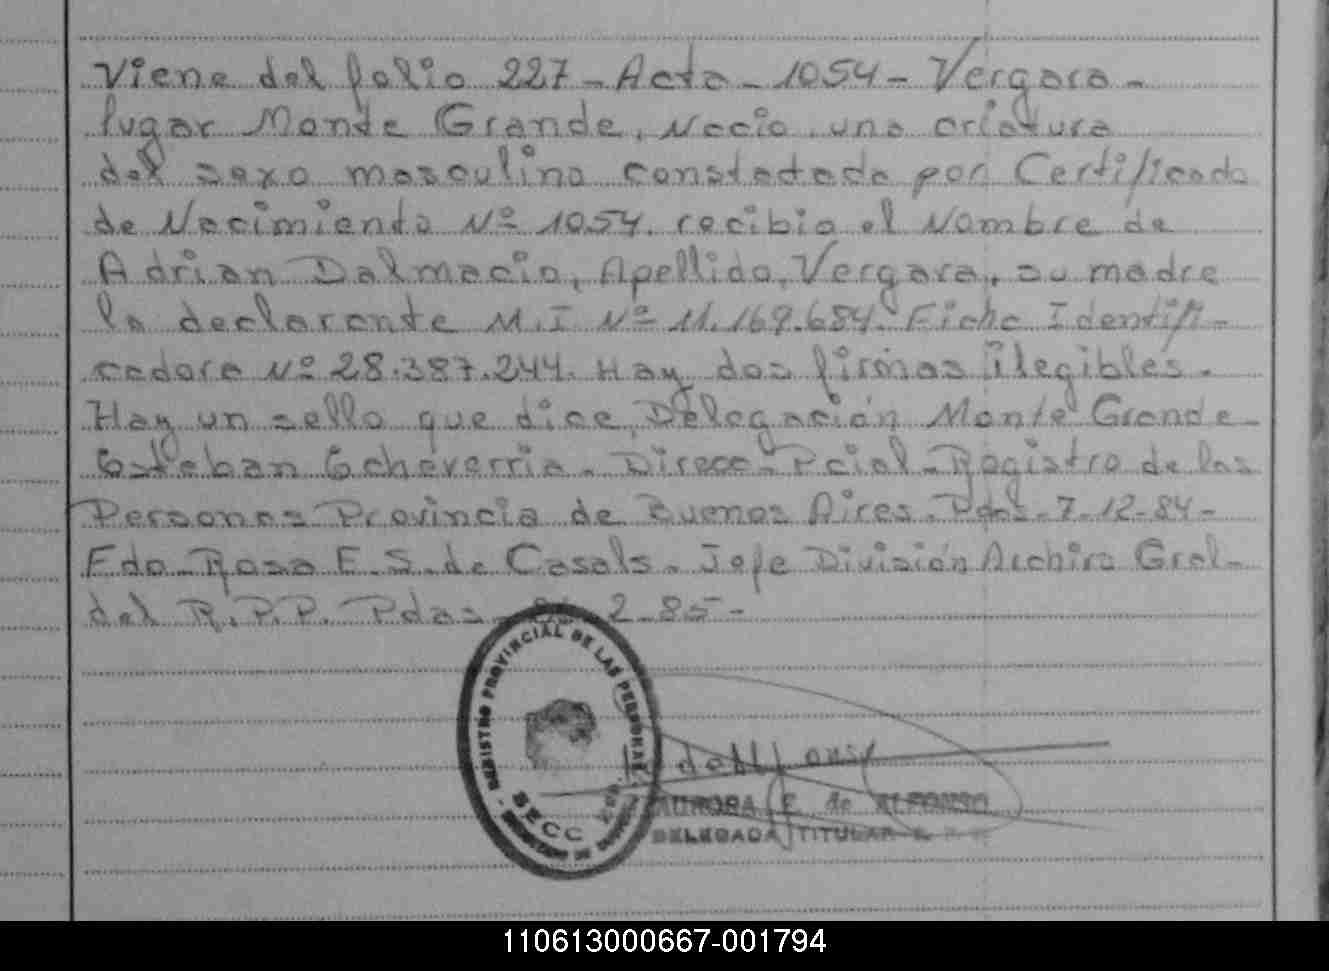 Viene del folio 227 - Acta - 1054 - Vergara -
lugar Monte Grande, Nacio una criatura
del sexo masculino constatada por Certificado
de Nacimiento Nº 1054. recibio el Nombre de
Adrian Dalmacio, Apellido, Vergara, su madre
la declarante M.I Nº 11.169.684. Ficha Identifi-
cadora Nº 28.387.244. Hay dos firmas ilegibles.
Hay un sello que dice, Delegación Monte Grande-
Esteban Echeverria. Direcc. Pcial. Registro de las
Personas Provincia de Buenos Aires. Pdas. 7-12-84-
Fdo. Rosa E. S. de Casals. Jefe División Archivo Gral-
del R.P.P. Pdas 2-85-
REGISTRO PROVINCIAL DE LAS PERSONAS
SECC
AURORA E. de ALFONSO
DELEGADA TITULAR
110613000667-001794